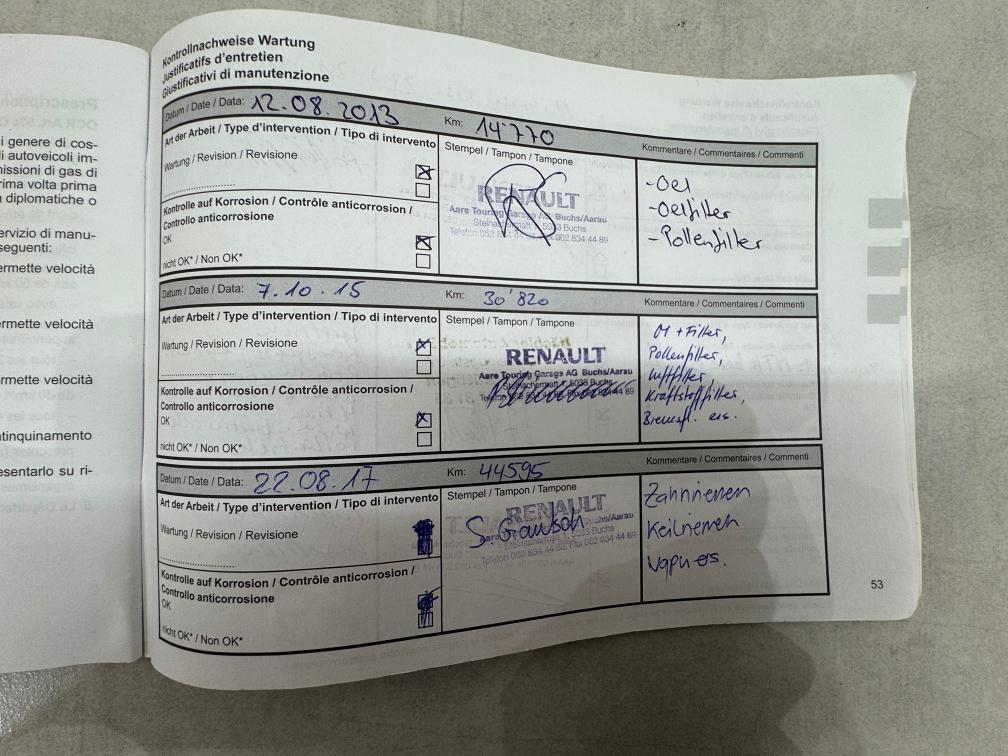 Kontrollnachweise Wartung
Justificatifs d'entretien
Giustificativi di manutenzione
Datum / Date / Data: 12.08.2013 Km: 14'770
Art der Arbeit / Type d'intervention / Tipo di intervento
Stempel / Tampon / Tampone
Kommentare / Commentaires / Commenti
Wartung / Revision / Revisione
Kontrolle auf Korrosion / Contrôle anticorrosion /
Controllo anticorrosione
OK
nicht OK* / Non OK*
RENAULT
Aare Touring Garage AG, Buchs/Aarau
5033 Buchs
062 834 44 89
-Oel
-Oelfilter
-Pollenfilter
Datum / Date / Data: 7.10.15 Km: 30'820
Art der Arbeit / Type d'intervention / Tipo di intervento
Stempel / Tampon / Tampone
Kommentare / Commentaires / Commenti
Wartung / Revision / Revisione
Kontrolle auf Korrosion / Contrôle anticorrosion /
Controllo anticorrosione
OK
nicht OK* / Non OK*
RENAULT
Aare Touring Garage AG Buchs/Aarau
5033 Buchs
Telefon
+ Filter,
Pollenfilter,
Luftfilter
Kraftstoffilter,
Bremsfl. ers.
Datum / Date / Data: 22.08.17 Km: 44595
Art der Arbeit / Type d'intervention / Tipo di intervento
Stempel / Tampon / Tampone
Kommentare / Commentaires / Commenti
Wartung / Revision / Revisione
Kontrolle auf Korrosion / Contrôle anticorrosion /
Controllo anticorrosione
OK
nicht OK* / Non OK*
RENAULT
Buchs/Aarau
5033 Buchs
Telefon 062 834 44 88, Fax 062 834 44 89
Zahnriemen
Keilriemen
wapu ers.
53
i genere di cos-
li autoveicoli im-
missioni di gas di
rima volta prima
diplomatiche o
ervizio di manu-
seguenti:
ermette velocità
ermette velocità
rmette velocità
ntinquinamento
esentarlo su ri-